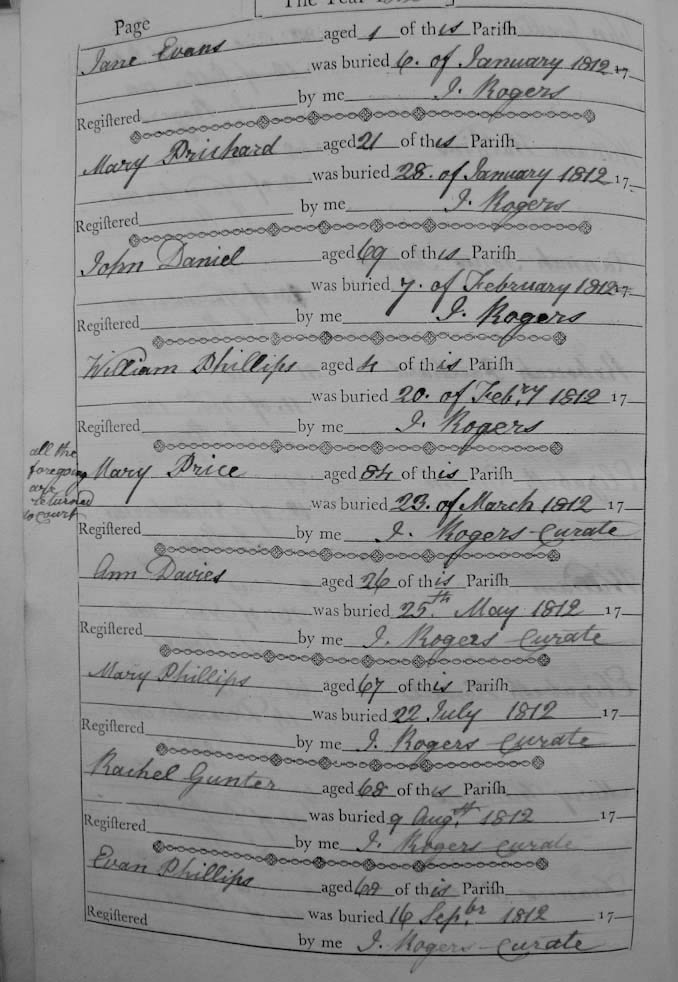 Page
Jane Evans aged 1 of this Pariſh
was buried 6. of January 1812 17
Regiſtered by me J. Rogers
Mary Prichard aged 21 of this Pariſh
was buried 28. of January 1812 17
Regiſtered by me J. Rogers
John Daniel aged 69 of this Pariſh
was buried 7. of February 1812 17
Regiſtered by me J. Rogers
William Phillips aged 4 of this Pariſh
was buried 20. of Feb.ry 1812 17
Regiſtered by me J. Rogers
all the
foregoing
are
returned
to court
Mary Price aged 84 of this Pariſh
was buried 23. of March 1812 17
Regiſtered by me J. Rogers - Curate
Ann Davies aged 26 of this Pariſh
was buried 25.th May 1812 17
Regiſtered by me J. Rogers Curate
Mary Phillips aged 67 of this Pariſh
was buried 22 July 1812 17
Regiſtered by me J. Rogers Curate
Rachel Gunter aged 68 of this Pariſh
was buried 9 Aug.st 1812 17
Regiſtered by me J. Rogers Curate
Evan Phillips aged 68 of this Pariſh
was buried 16 Sep.br 1812 17
Regiſtered by me J. Rogers - Curate